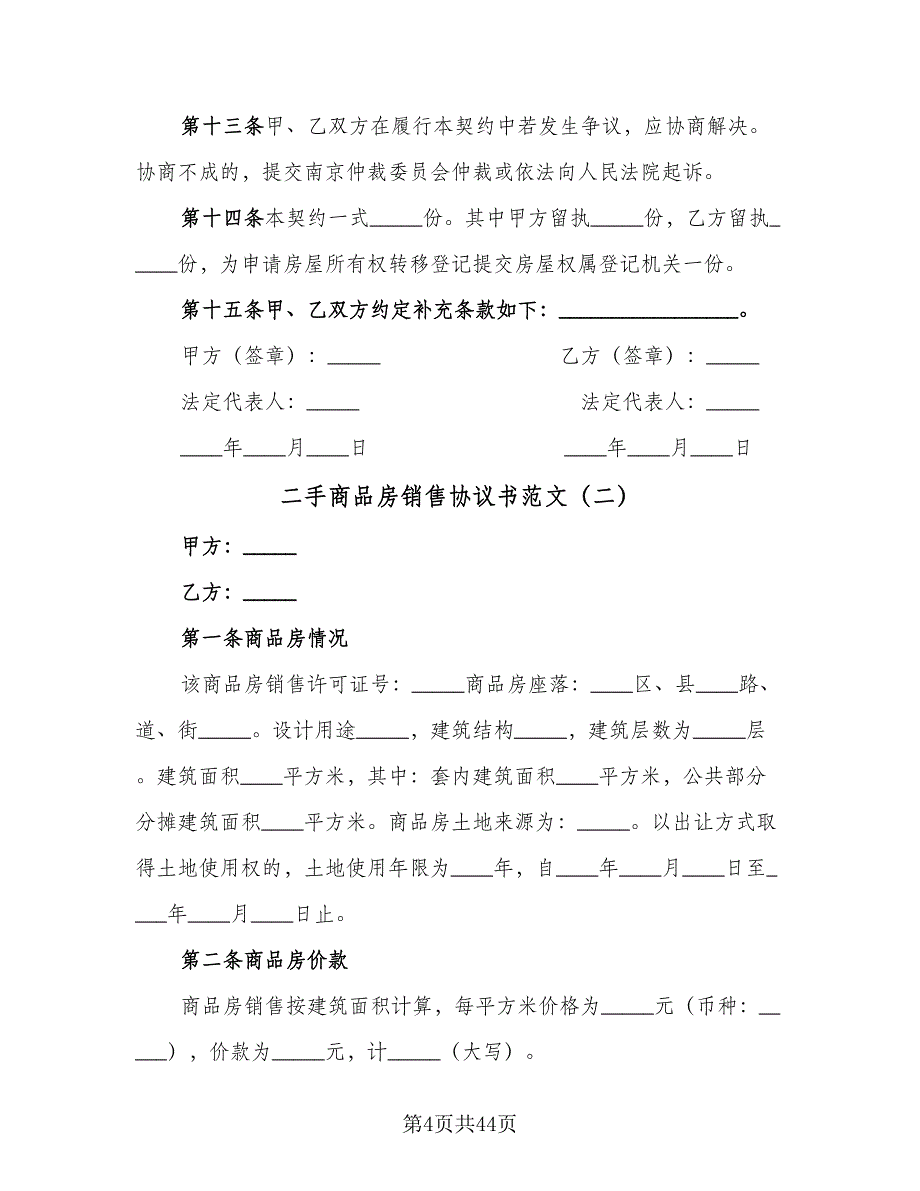 第十三条甲、乙双方在履行本契约中若发生争议，应协商解决。
协商不成的，提交南京仲裁委员会仲裁或依法向人民法院起诉。
第十四条本契约一式_____份。其中甲方留执_____份，乙方留执_
____份，为申请房屋所有权转移登记提交房屋权属登记机关一份。
第十五条甲、乙双方约定补充条款如下：_________________。
甲方（签章）：_____ 乙方（签章）：_____
法定代表人：_____ 法定代表人：_____
____年____月____日 ____年____月____日
二手商品房销售协议书范文（二）
甲方：_____
乙方：_____
第一条商品房情况
该商品房销售许可证号：_____商品房座落：____区、县____路、
道、街_____。设计用途_____，建筑结构_____，建筑层数为_____层
。建筑面积____平方米，其中：套内建筑面积____平方米，公共部分
分摊建筑面积____平方米。商品房土地来源为：_____。以出让方式取
得土地使用权的，土地使用年限为____年，自____年____月____日至_
___年____月____日止。
第二条商品房价款
商品房销售按建筑面积计算，每平方米价格为_____元（币种：__
___），价款为_____元，计_____（大写）。
第4页共44页